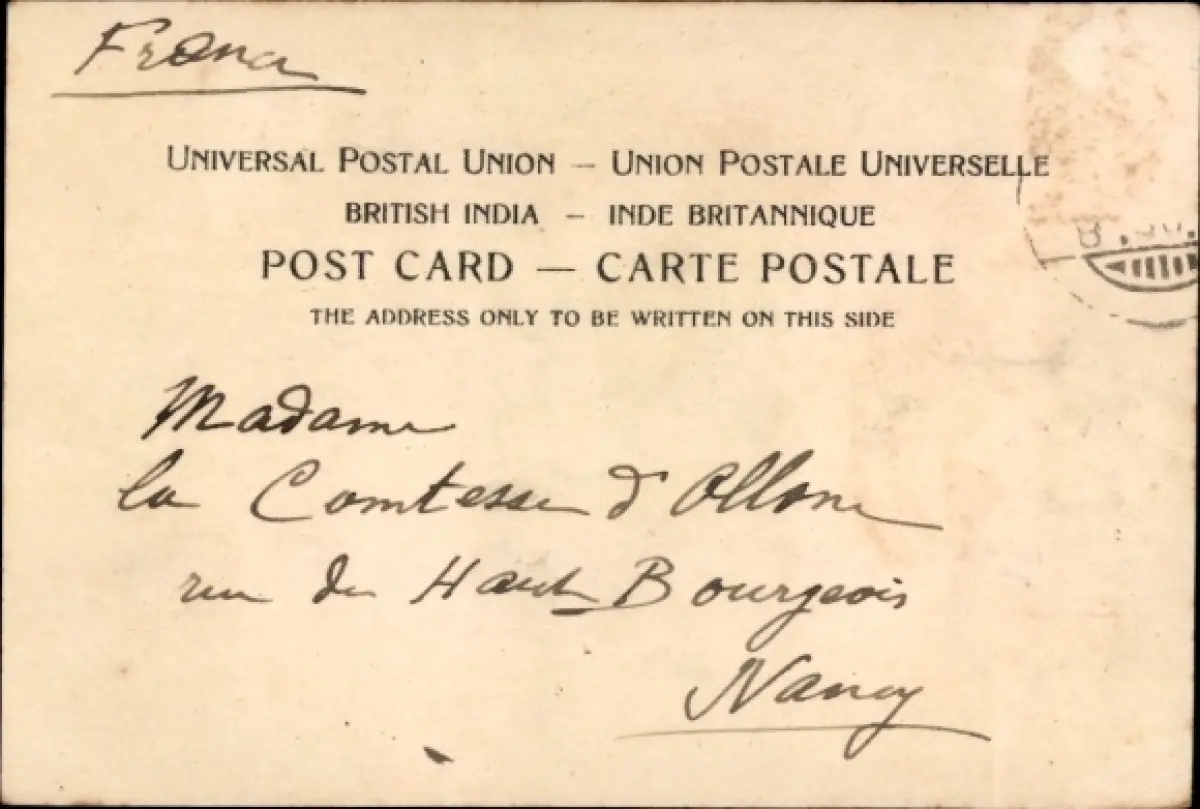 France
UNIVERSAL POSTAL UNION — UNION POSTALE UNIVERSELLE
BRITISH INDIA — INDE BRITANNIQUE
POST CARD — CARTE POSTALE
THE ADDRESS ONLY TO BE WRITTEN ON THIS SIDE
Madame
la Comtesse d'Ollone
rue des Haut Bourgeois
Nancy